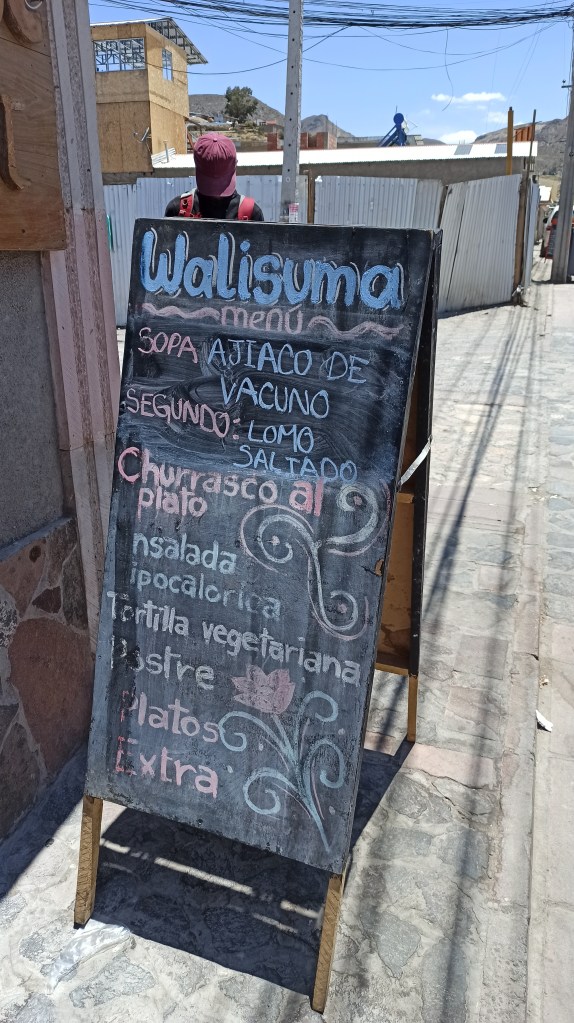 Walisuma
menú
SOPA AJIACO DE
VACUNO
SEGUNDO: LOMO
SALTADO
Churrasco al
plato
nsalada
ipocalorica
Tortilla vegetariana
Postre
Platos
Extra